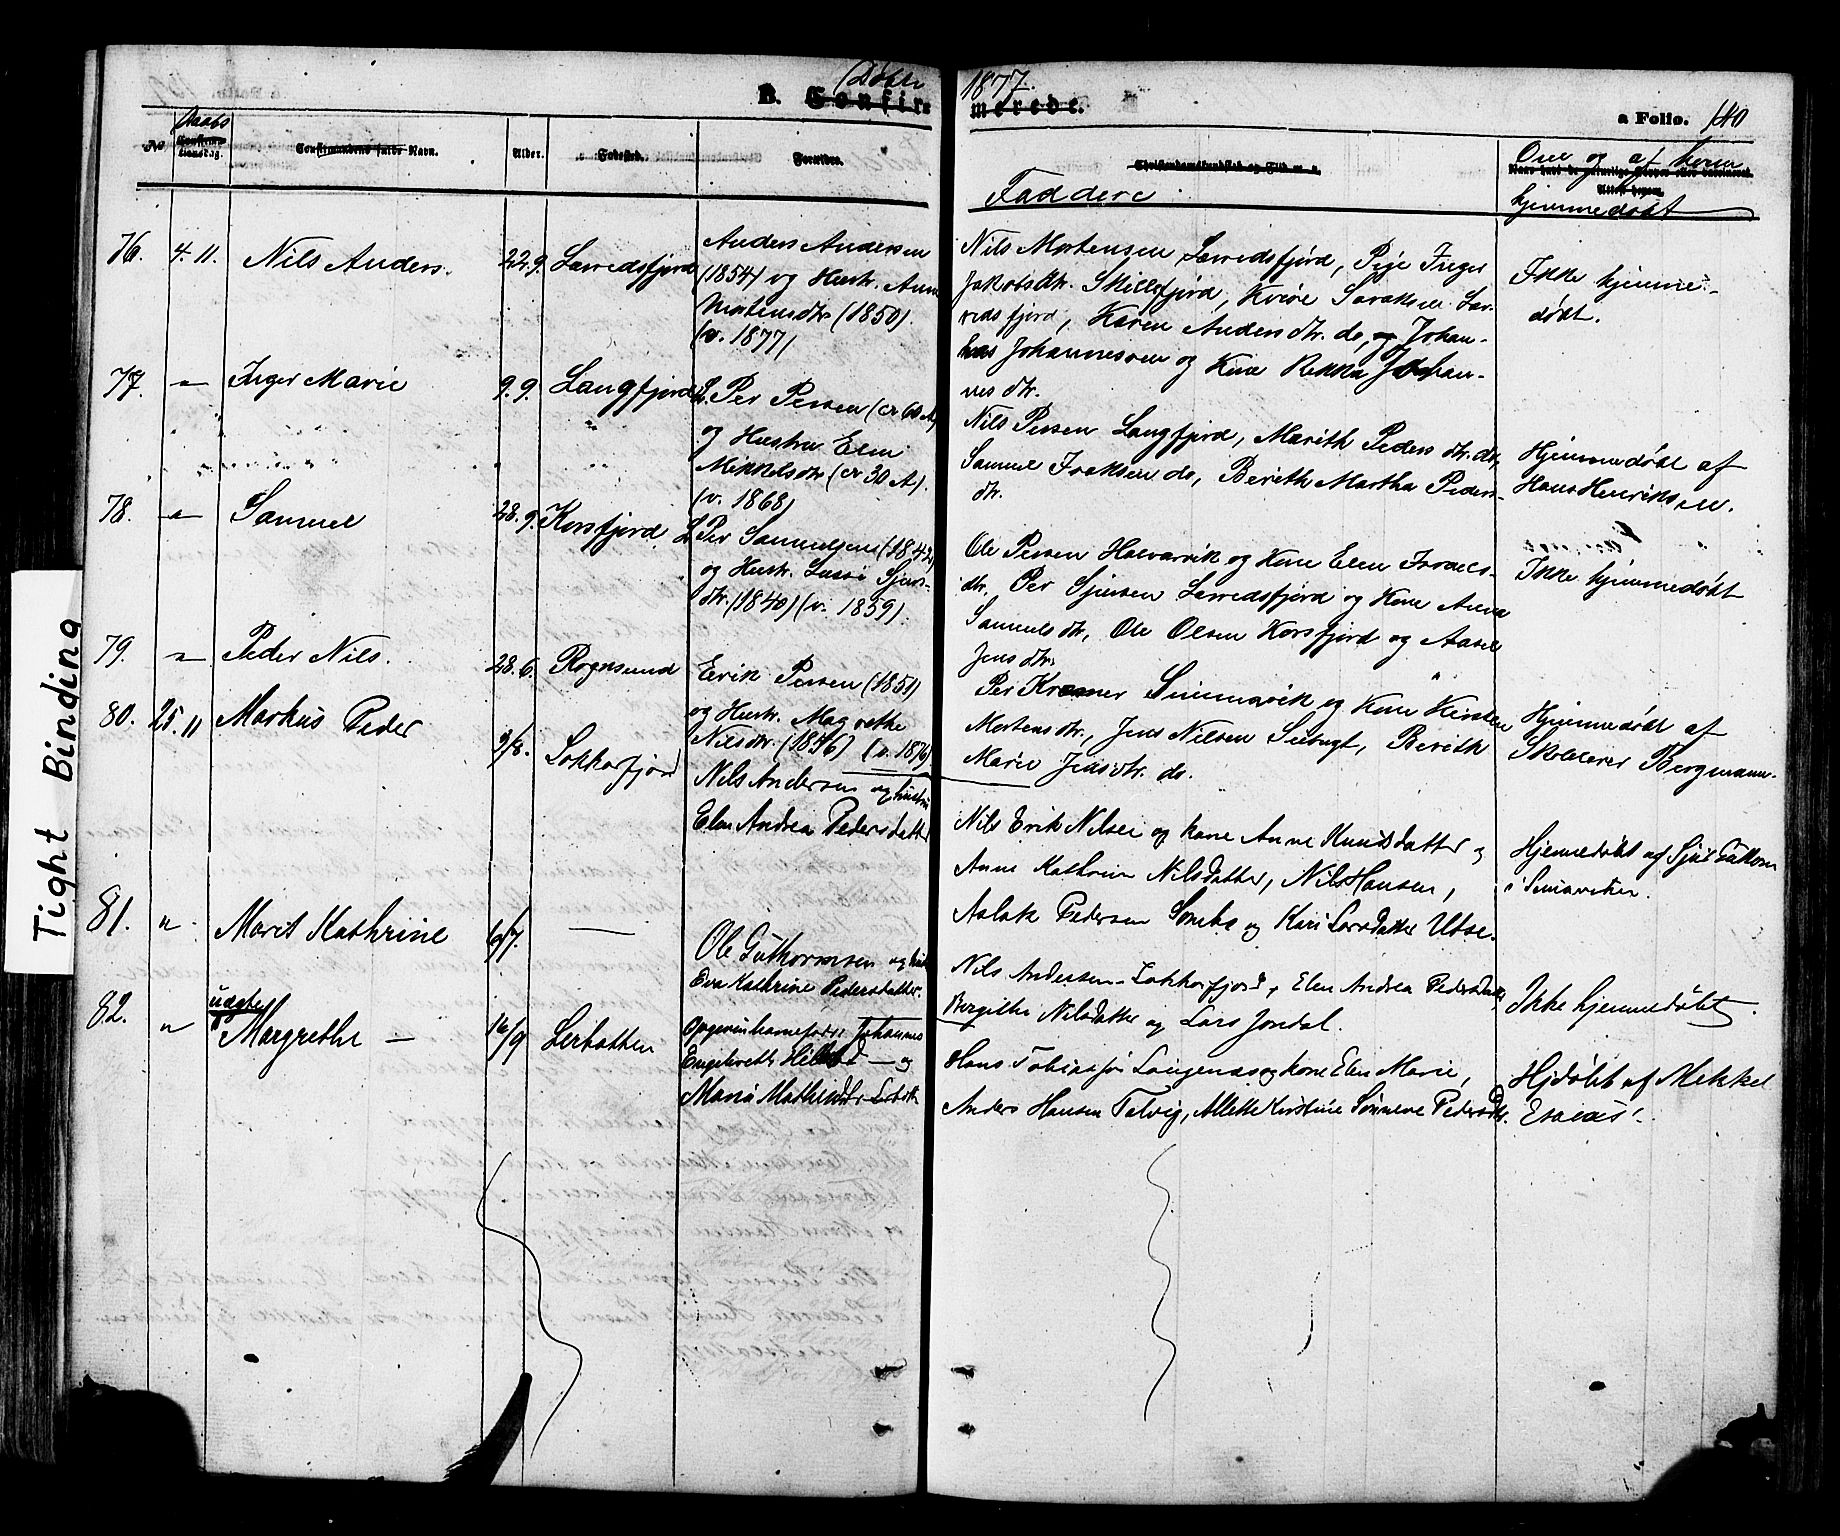 Døbte 1877.
B. Confirmerede.
a Folio. 140
Daabs
No
Confirmationsdag.
Confirmandens fulde Navn.
Alder.
Fødested.
Forældre.
Christendomskundskab og Flid m. v.
Faddere.
Om og af hvem
hjemmedøbt
76. 4. 11. Nils Anders. 22. 9. Leredsfjord
Anders Andersen
(1854) og Hustr. Anne
Mortensdtr. (1850).
(v. 1877)
Nils Mortensen Leredsfjord, Inger
Jakobsdtr. Skillefjord,
Karen Andersdtr. do, og Johan-
nes Johannesen og Kone Rekka Johan-
nesdtr.
Ikke hjemme-
døbt.
77. " Inger Marie 9. 9. Langfjord
L. Per Persen (cr 60 A)
og Hustru Elen
Mikkelsdtr. (cr 30 A).
(v. 1868)
Nils Persen Langfjord, Marith Pedersdtr. do,
Samuel Isaksen do, Berith Martha Peders-
dtr.
Hjemmedøbt af
Hans Henriksen.
78. " Samuel 28. 9. Korsfjord
L. Per Samuelsen (1842)
og Hustr. Sjurs-
dtr. (1840) (v. 1859).
Ole Persen og Kone Elen Israels-
dtr. Per Sjursen Leredsfjord og Kone Anna
Samuelsdtr, Ole Olsen Korsfjord og
Jensdtr.
Ikke hjemmedøbt
79. " Peder Nils. 28. 6. Rognsund
Eerik Persen (1851)
og Hustr. Magrethe
Nilsdtr. (1856) (v. 1876)
Per Kramer og Kone Kirsten
Mortensdtr., Jens Nilsen Berith
Marie Jensdtr. do.
Hjemmedøbt af
Skolelærer Bergmann.
80. 25. 11 Markus Peder 9/8. Lokkarfjord
Nils Andersen og hustru
Elen Andrea Pedersdatter
Nils Erik Nilsen og kone Anne Knutsdatter og
Anne Kathrine Nilsdatter, Nils Hansen,
Aslak Pedersen og Kari Larsdatter
Hjemmedøbt af Sjur
i
81. " Marit Kathrine 6/7. —
Ole Guthormsen og hustru
Eva Kathrine Pedersdatter.
Nils Andersen - Lokkarfjord, Elen Andrea Pedersdatter
Bergitha Nilsdatter og Lars Jondal.
Ikke hjemmedøbt.
82. " uægte
Margrethe — 16/9 Lerbotten
Opgiven barnefader: Johannes
Engebreth — og
Maria
Hans Tobiassøn og kone Elen Marie,
Anders Hansen Talvig, Allette Kirstine Pedersdtr.
Hjdøbt af Mikkel
Esaias.
Tight Binding